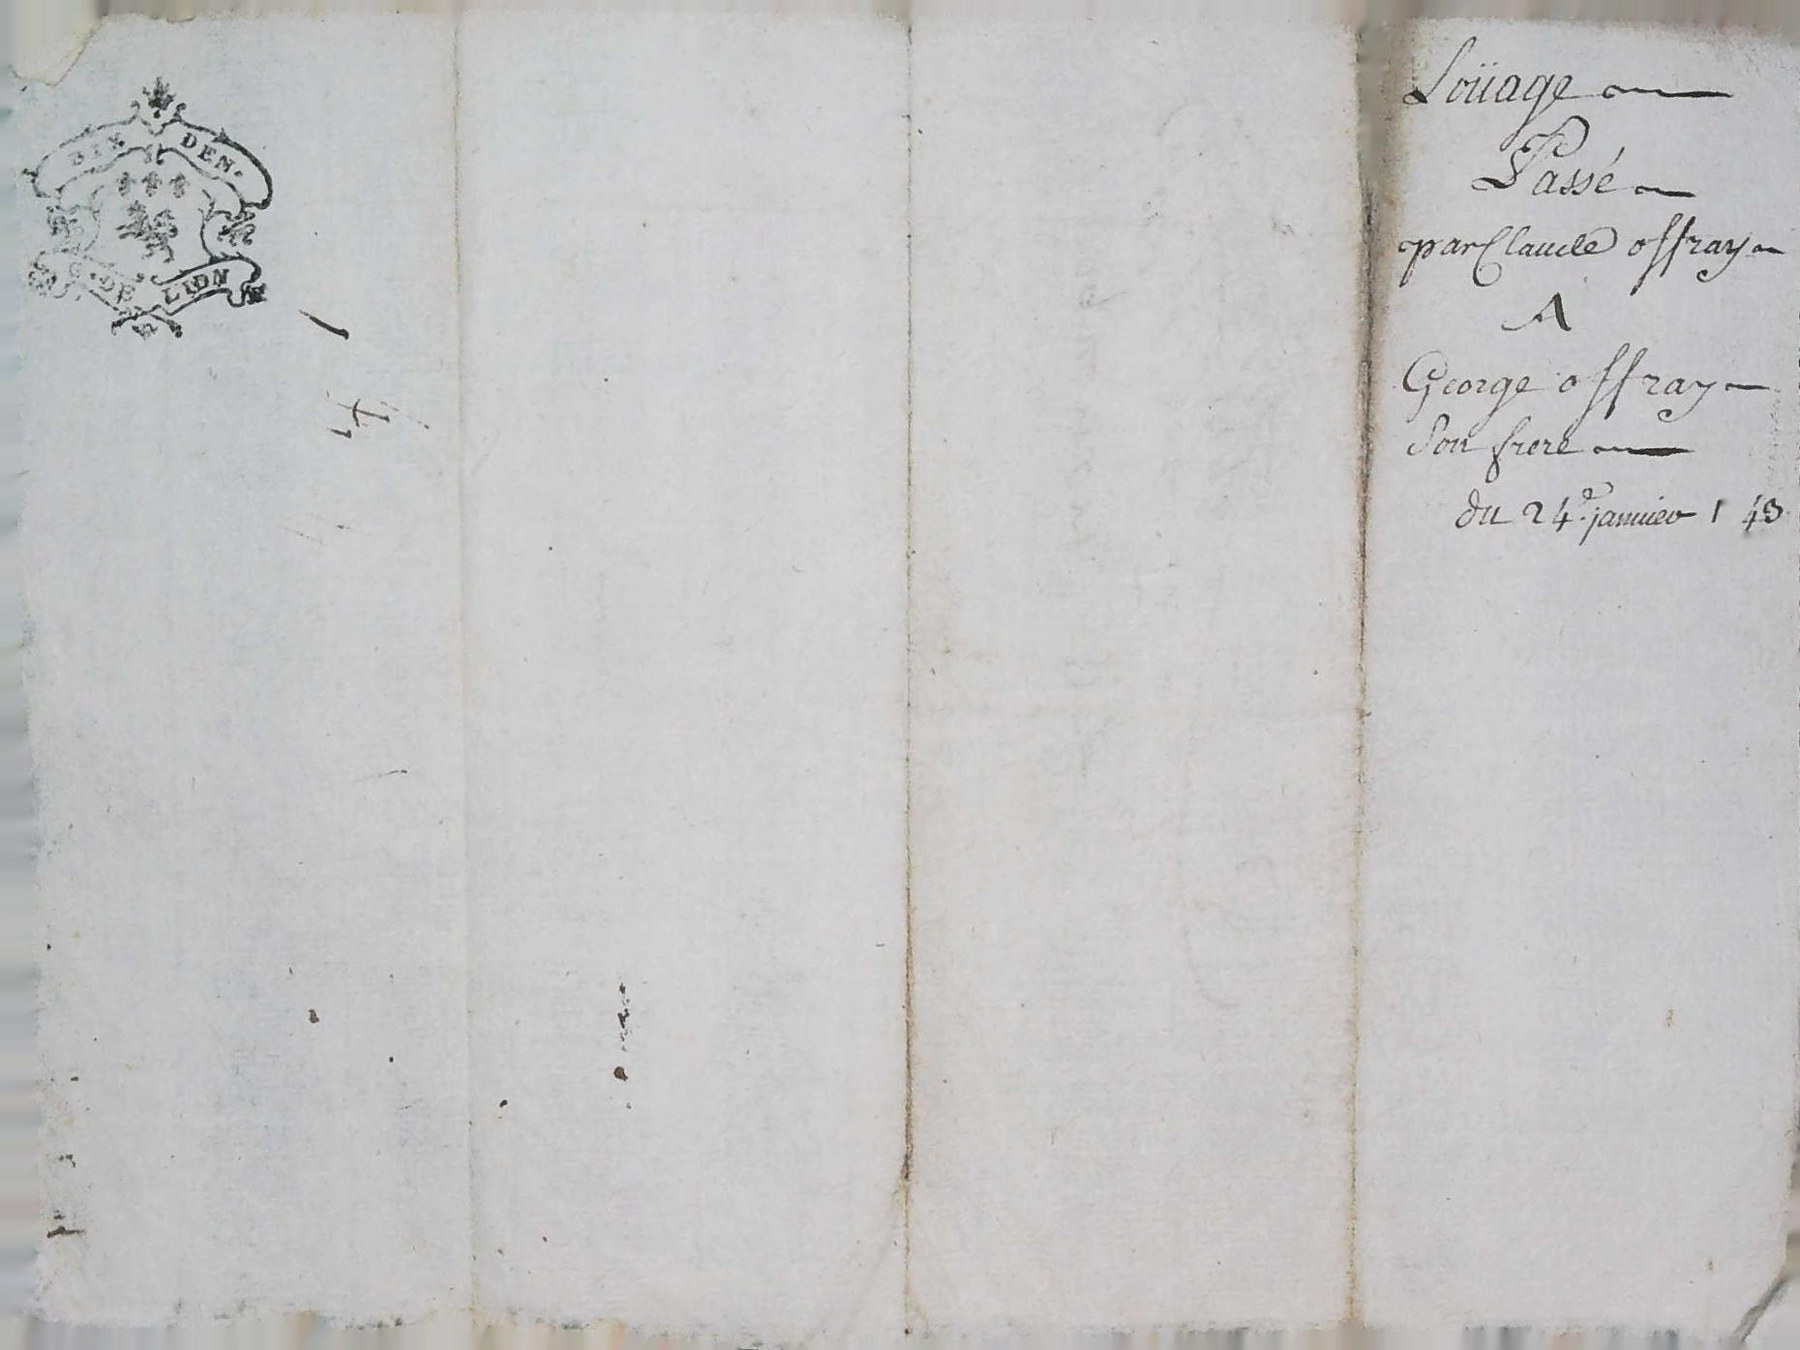 DIX DEN.
G. DE LION
Loüage
Passé
par Claude offray
A
George offray
Son frere
du 24e. janvier 1 43